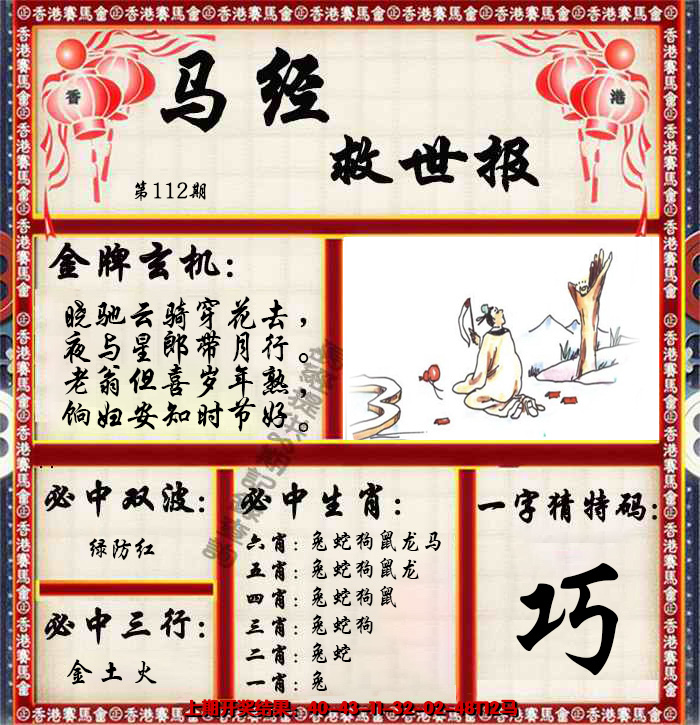 香港賽馬會 香港賽馬會 香港賽馬會 香港賽馬會 香港賽馬會 香港賽馬會
香
港
马经
救世报
第112期
金牌玄机：
晓驰云骑穿花去，
夜与星郎带月行。
老翁但喜岁年熟，
饷妇安知时节好。
必中双波：
绿防红
必中三行：
金土火
必中生肖：
六肖：兔蛇狗鼠龙马
五肖：兔蛇狗鼠龙
四肖：兔蛇狗鼠
三肖：兔蛇狗
二肖：兔蛇
一肖：兔
一字猜特码：
巧
上期开奖结果：40-43-11-32-02-48T12马